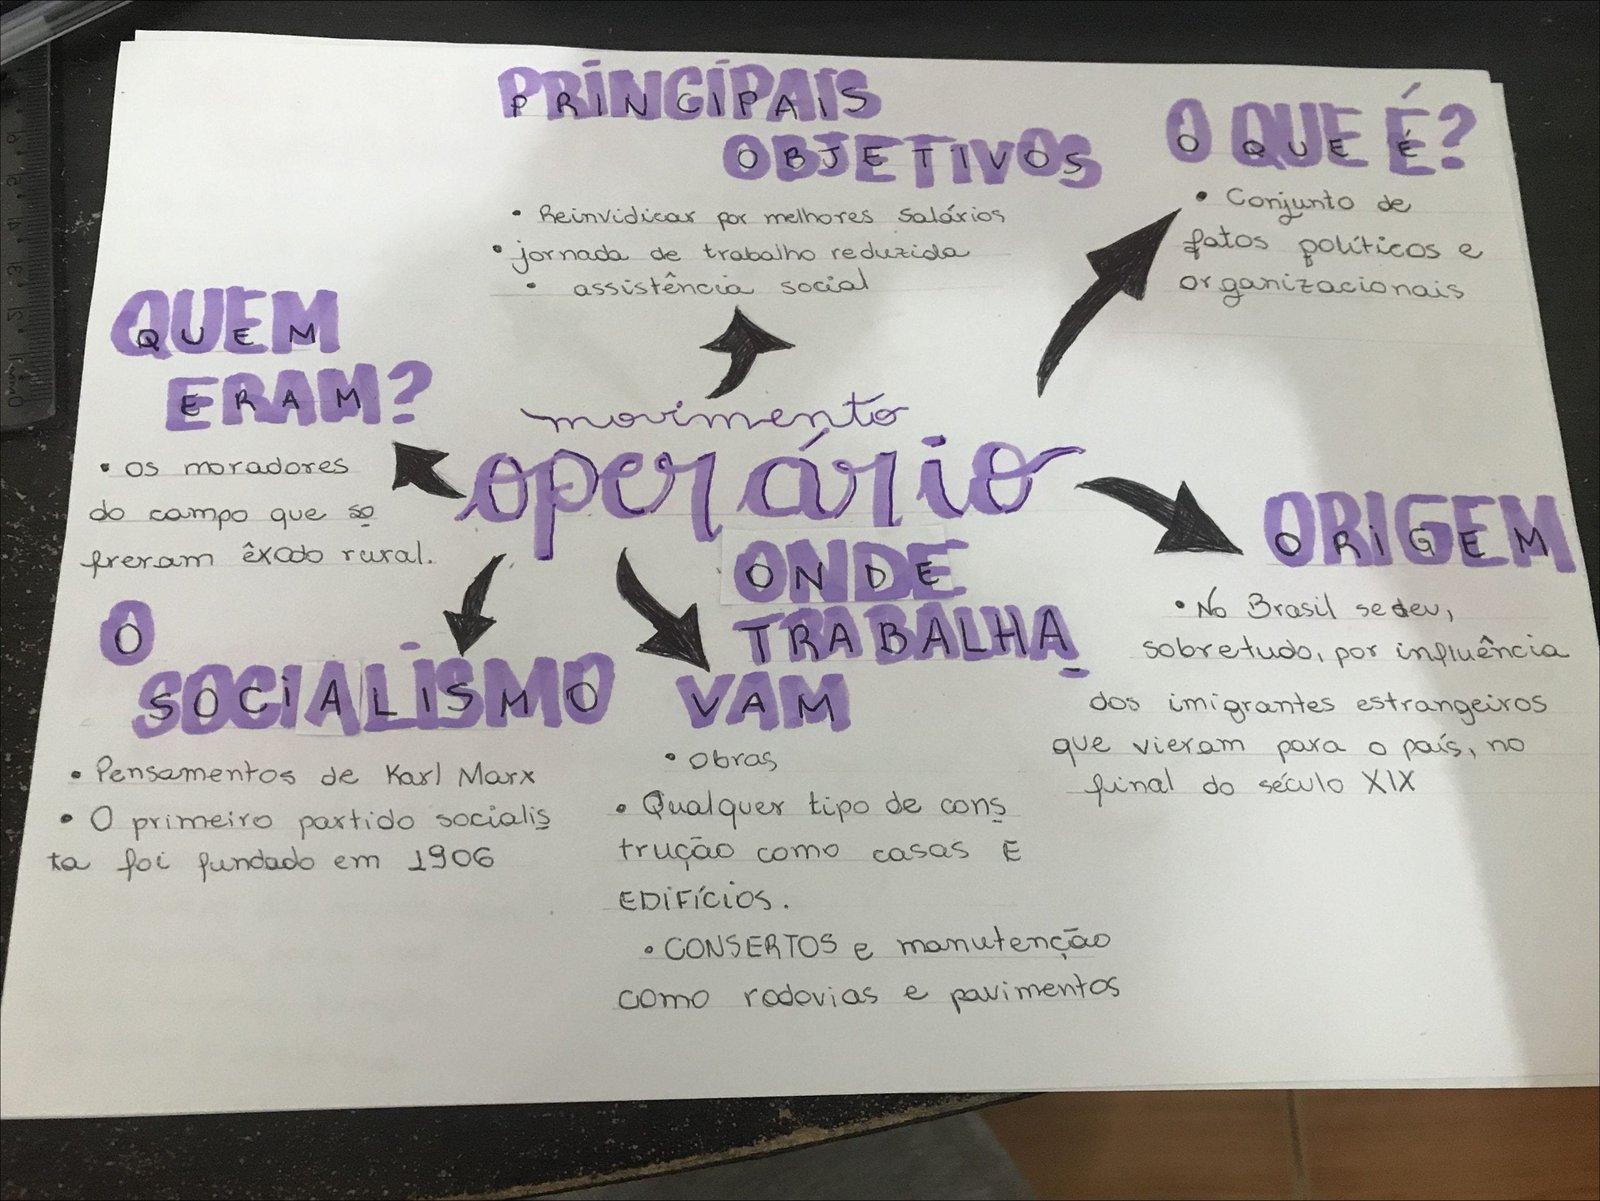 PRINCIPAIS
OBJETIVOS
• Reinvidicar por melhores salários
• jornada de trabalho reduzida
• assistência social
O QUE É?
• Conjunto de
fatos políticos e
organizacionais
QUEM
ERAM?
• os moradores
do campo que so
freram êxodo rural.
movimento
operário
ORIGEM
• No Brasil se deu,
sobretudo, por influência
dos imigrantes estrangeiros
que vieram para o país, no
final do século XIX
O
SOCIALISMO
• Pensamentos de Karl Marx
• O primeiro partido socialis
ta foi fundado em 1906
ONDE
TRABALHA
VAM
• obras
• Qualquer tipo de cons
trução como casas E
EDIFÍCIOS.
• CONSERTOS e manutenção
como rodovias e pavimentos